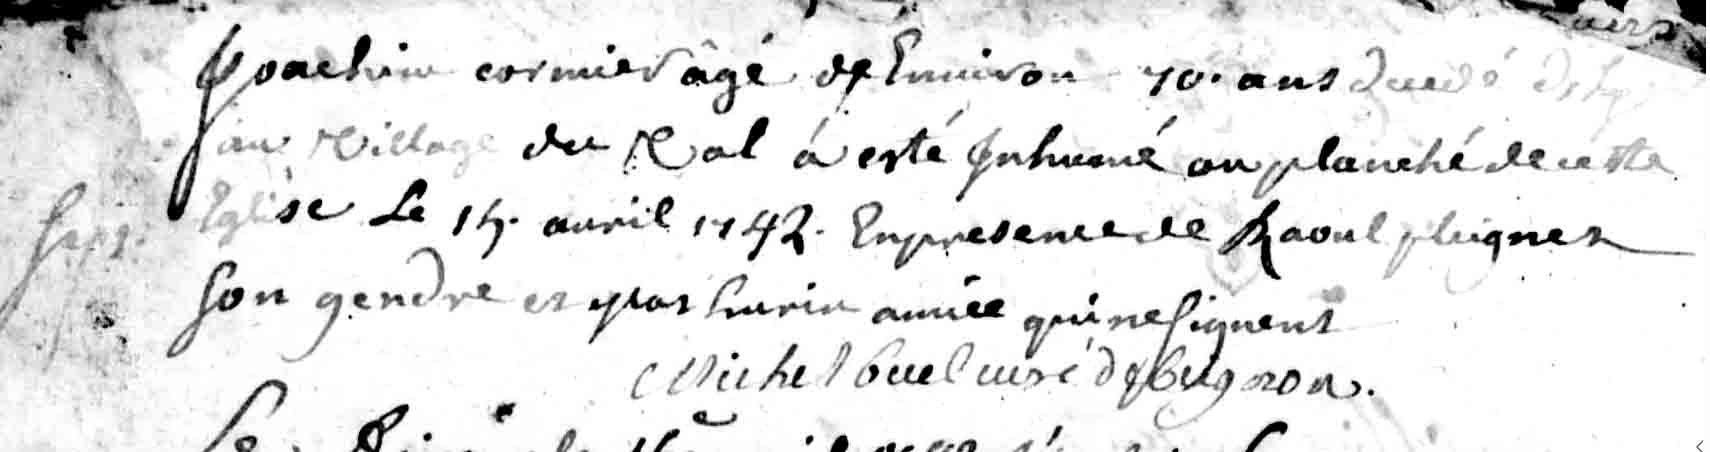 Joachim cormier âgé de Enuiron 70. ans decedé
au Village du Val à esté Inhumé au planché de cette
Eglise Le 15. auril 1742. En presence de Raoul pleignet
son gendre et mathurin amiée qui ne signent
Michel curé de